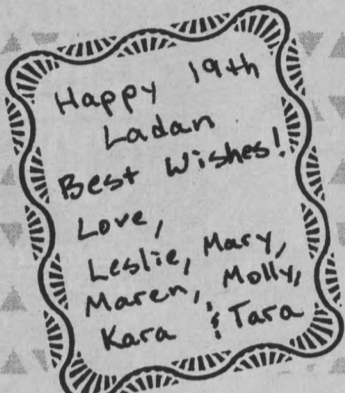 Happy 19th
Ladan
Best Wishes!
Love,
Leslie, Mary,
Maren, Molly,
Kara & Tara